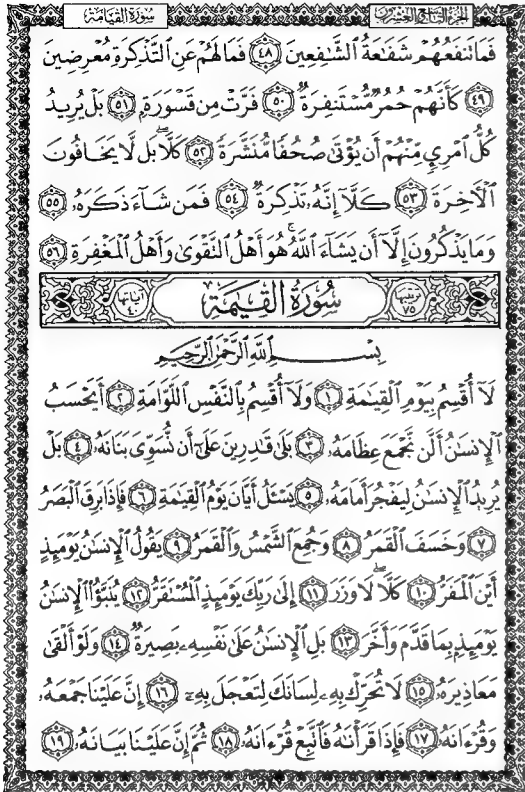 سُورَةُ القِيَامَةِ الجُزءُ التَّاسِعُ وَالعِشْرُونَ
فَمَا تَنفَعُهُمْ شَفَٰعَةُ ٱلشَّٰفِعِينَ ٤٨ فَمَا لَهُمْ عَنِ ٱلتَّذْكِرَةِ مُعْرِضِينَ
٤٩ كَأَنَّهُمْ حُمُرٌ مُّسْتَنفِرَةٌ ٥٠ فَرَّتْ مِن قَسْوَرَةٍ ٥١ بَلْ يُرِيدُ
كُلُّ ٱمْرِئٍ مِّنْهُمْ أَن يُؤْتَىٰ صُحُفًا مُّنَشَّرَةً ٥٢ كَلَّا بَل لَّا يَخَافُونَ
ٱلْأَخِرَةَ ٥٣ كَلَّآ إِنَّهُۥ تَذْكِرَةٌ ٥٤ فَمَن شَآءَ ذَكَرَهُۥ ٥٥
وَمَا يَذْكُرُونَ إِلَّآ أَن يَشَآءَ ٱللَّهُ هُوَ أَهْلُ ٱلتَّقْوَىٰ وَأَهْلُ ٱلْمَغْفِرَةِ ٥٦
ترتيبها ٧٥ سُورَةُ القِيَٰمَةِ آياتها ٤٠
بِسْمِ ٱللَّهِ ٱلرَّحْمَٰنِ ٱلرَّحِيمِ
لَآ أُقْسِمُ بِيَوْمِ ٱلْقِيَٰمَةِ ١ وَلَآ أُقْسِمُ بِٱلنَّفْسِ ٱللَّوَّامَةِ ٢ أَيَحْسَبُ
ٱلْإِنسَٰنُ أَلَّن نَّجْمَعَ عِظَامَهُۥ ٣ بَلَىٰ قَٰدِرِينَ عَلَىٰٓ أَن نُّسَوِّىَ بَنَانَهُۥ ٤ بَلْ
يُرِيدُ ٱلْإِنسَٰنُ لِيَفْجُرَ أَمَامَهُۥ ٥ يَسْـَٔلُ أَيَّانَ يَوْمُ ٱلْقِيَٰمَةِ ٦ فَإِذَا بَرِقَ ٱلْبَصَرُ
٧ وَخَسَفَ ٱلْقَمَرُ ٨ وَجُمِعَ ٱلشَّمْسُ وَٱلْقَمَرُ ٩ يَقُولُ ٱلْإِنسَٰنُ يَوْمَئِذٍ
أَيْنَ ٱلْمَفَرُّ ١٠ كَلَّا لَا وَزَرَ ١١ إِلَىٰ رَبِّكَ يَوْمَئِذٍ ٱلْمُسْتَقَرُّ ١٢ يُنَبَّؤُا۟ ٱلْإِنسَٰنُ
يَوْمَئِذٍۭ بِمَا قَدَّمَ وَأَخَّرَ ١٣ بَلِ ٱلْإِنسَٰنُ عَلَىٰ نَفْسِهِۦ بَصِيرَةٌ ١٤ وَلَوْ أَلْقَىٰ
مَعَاذِيرَهُۥ ١٥ لَا تُحَرِّكْ بِهِۦ لِسَانَكَ لِتَعْجَلَ بِهِۦٓ ١٦ إِنَّ عَلَيْنَا جَمْعَهُۥ
وَقُرْءَانَهُۥ ١٧ فَإِذَا قَرَأْنَٰهُ فَٱتَّبِعْ قُرْءَانَهُۥ ١٨ ثُمَّ إِنَّ عَلَيْنَا بَيَانَهُۥ ١٩